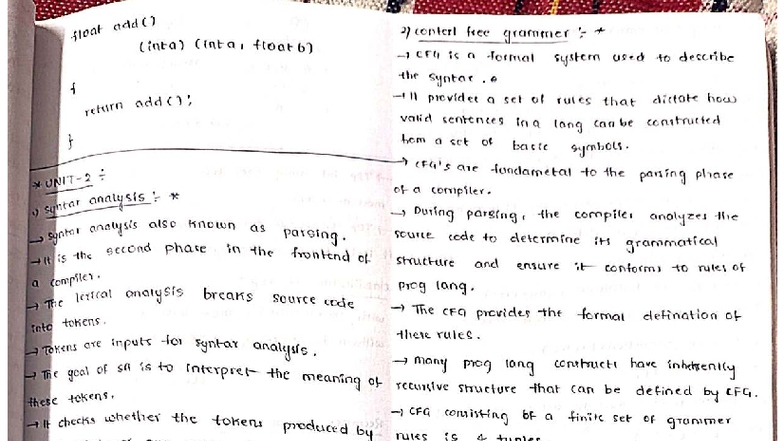 float add()
(inta) (inta, float b)
{
return add();
}
* UNIT-2 ÷
1) syntax analysis :- *
→ syntax analysis also known as parsing.
→ It is the second phase in the frontend of
a compiler.
→ The lexical analysis breaks source code
into tokens.
→ Tokens are inputs for syntax analysis.
→ The goal of SA is to interpret the meaning of
these tokens.
→ It checks whether the tokens produced by
2) context free grammer :- *
→ CFG is a formal system used to describe
the syntax.
→ It provides a set of rules that dictate how
valid sentences in a lang can be constructed
from a set of basic symbols.
→ CFG's are fundametal to the parsing phase
of a compiler.
→ During parsing, the compiler analyzes the
source code to determine its grammatical
structure and ensure it conforms to rules of
prog lang.
→ The CFG provides the formal defination of
these rules.
→ Many prog lang constructs have inherently
recursive structure that can be defined by CFG.
→ CFG consisting of a finite set of grammer
rules is 4 tuples